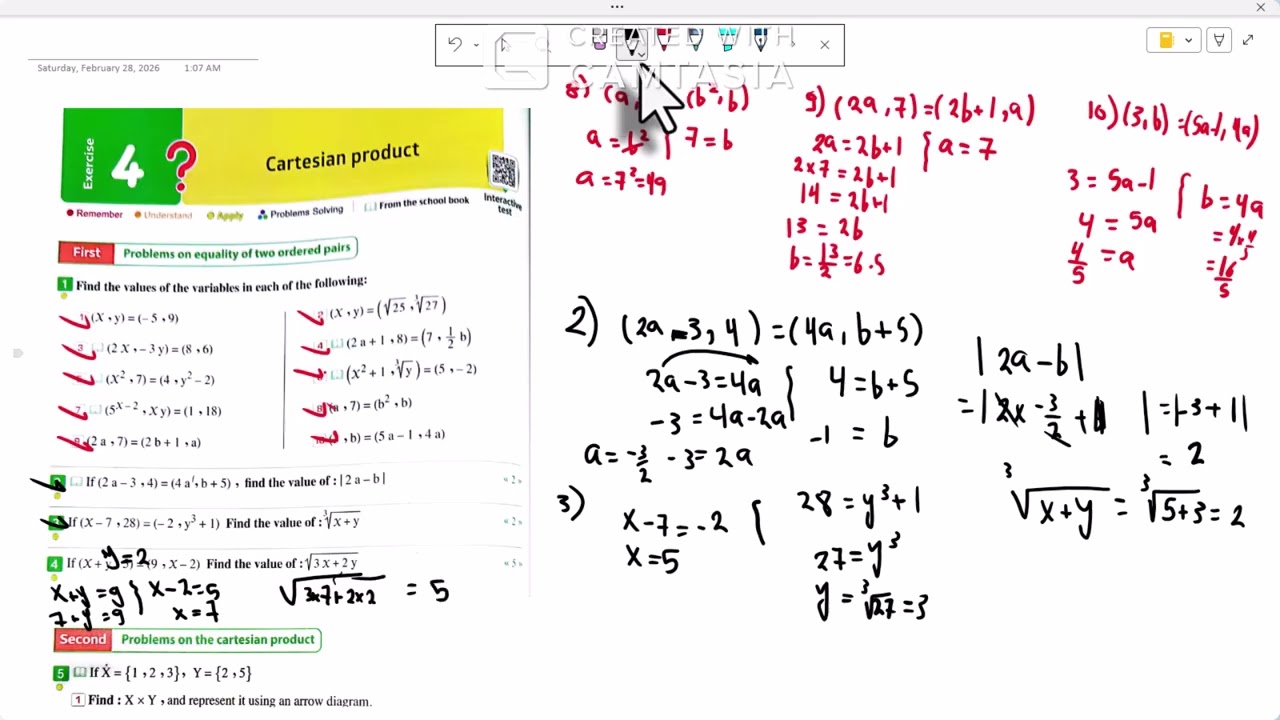 CREATED WITH
CAMTASIA
Saturday, February 28, 2026 1:07 AM
Exercise
4
?
Cartesian product
Interactive test
Remember
Understand
Apply
Problems Solving
From the school book
First Problems on equality of two ordered pairs
1 Find the values of the variables in each of the following:
(x , y) = (-5 , 9)
(x , y) = (√25 , ∛27)
(2 x , -3 y) = (8 , 6)
(2 a + 1 , 8) = (7 , 1/2 b)
(x² , 7) = (4 , y² - 2)
(x² + 1 , ∛y) = (5 , -2)
(5^(x-2) , x y) = (1 , 18)
, 7) = (b² , b)
(2 a , 7) = (2 b + 1 , a)
, b) = (5 a - 1 , 4 a)
If (2 a - 3 , 4) = (4 a , b + 5) , find the value of : |2 a - b| « 2 »
If (x - 7 , 28) = (-2 , y³ + 1) Find the value of : ∛x + y « 2 »
y = 2
4 If (x + 9 , x - 2) Find the value of : √3 x + 2 y « 5 »
x + y = 9 { x - 2 = 5
7 + y = 9 x = 7
√3×7+2×2 = 5
Second Problems on the cartesian product
5 If X = {1 , 2 , 3} , Y = {2 , 5}
1 Find : X × Y , and represent it using an arrow diagram.
8) (a, (b², b)
a = b² { 7 = b
a = 7² = 49
9) (2a, 7) = (2b+1, a)
2a = 2b+1 { a = 7
2×7 = 2b+1
14 = 2b+1
13 = 2b
b = 13/2 = 6.5
10) (3, b) = (5a-1, 4a)
3 = 5a-1 { b = 4a
4 = 5a
4/5 = a
= 16/5
2) (2a-3, 4) = (4a, b+5)
2a-3 = 4a { 4 = b+5
-3 = 4a-2a
-1 = b
a = -3/2 -3 = 2a
|2a-b|
= |2× -3/2 + 1| = |-3+1|
= 2
3) x-7 = -2 { 28 = y³+1
x = 5
27 = y³
y = ∛27 = 3
∛x+y = ∛5+3 = 2